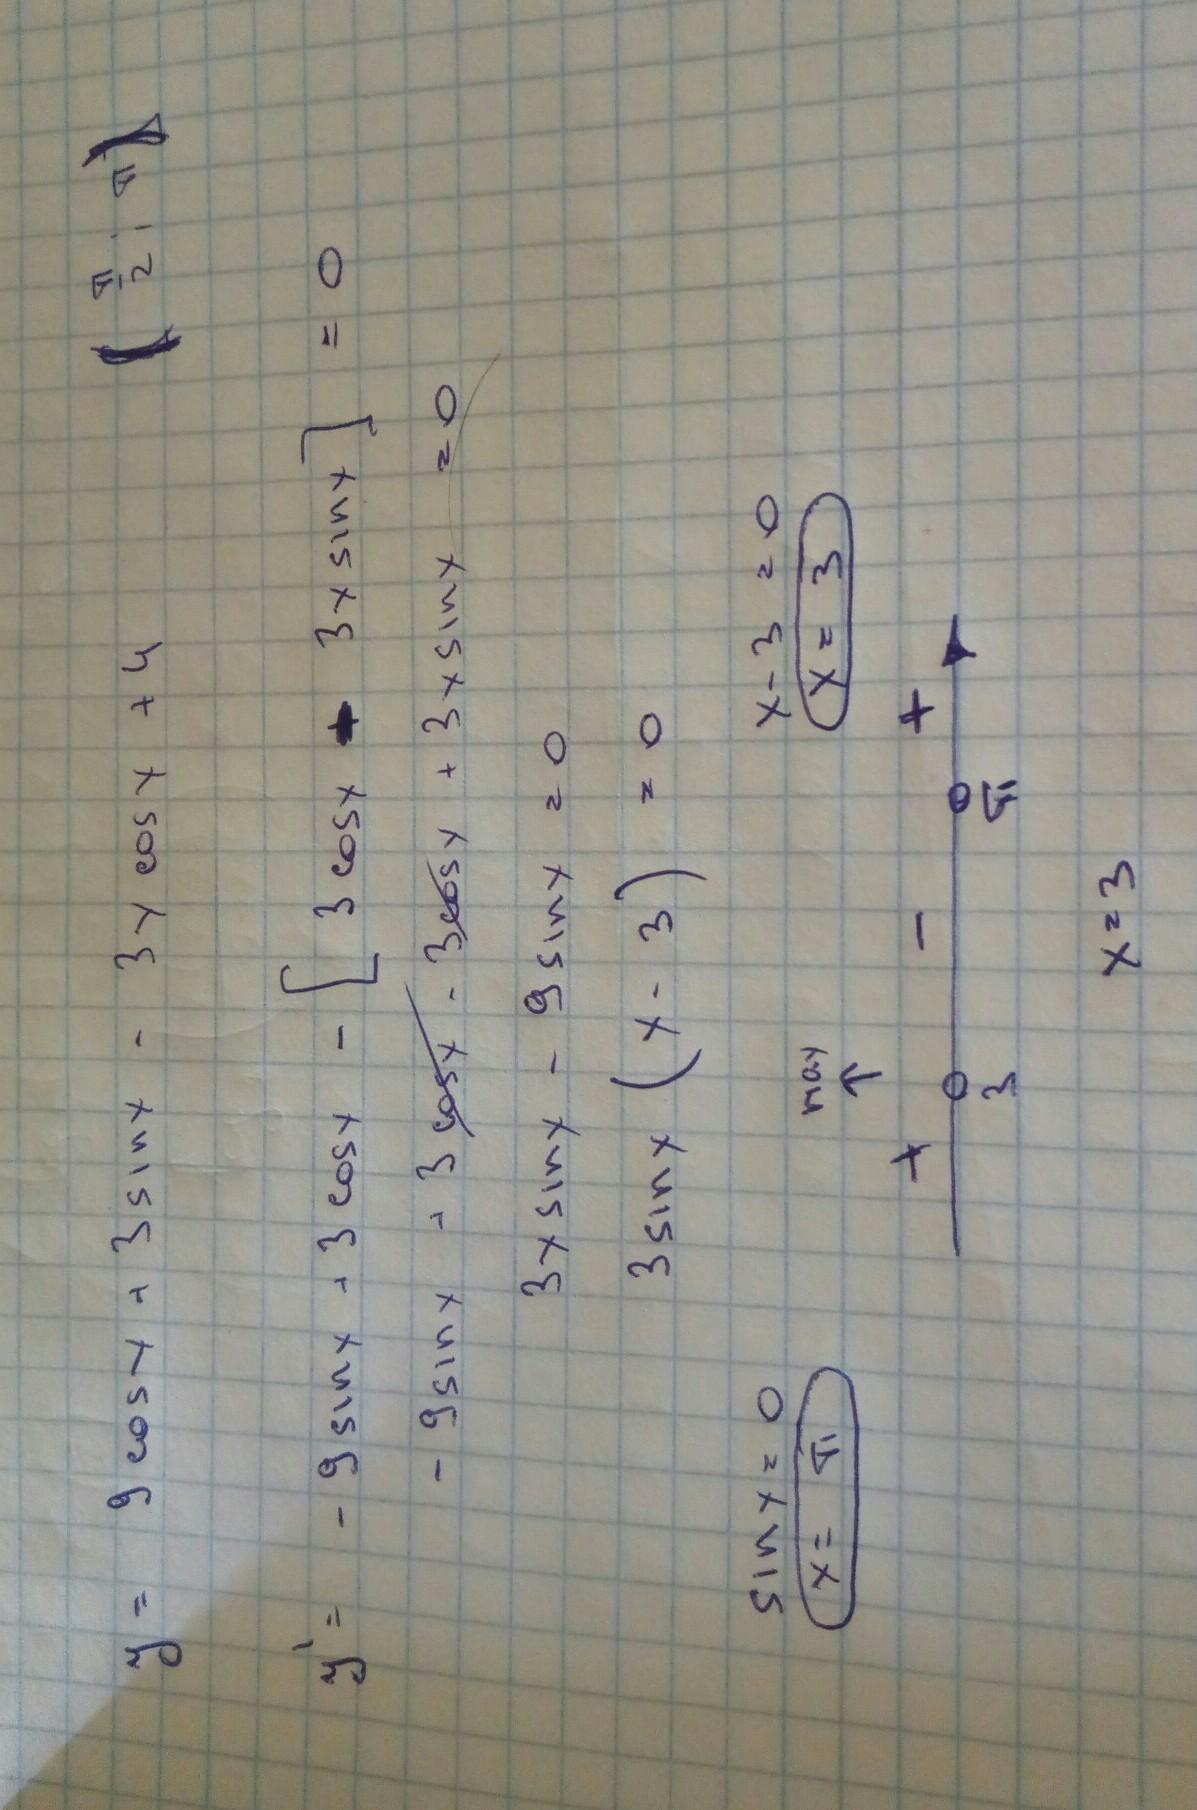 y = 9 cos x + 3 sin x - 3x cos x + 4 ( π/2 ; π )
y' = - 9 sin x + 3 cos x - [ 3 cos x - 3x sin x ] = 0
- 9 sin x + 3 cos x - 3 cos x + 3x sin x = 0
3x sin x - 9 sin x = 0
3 sin x ( x - 3 ) = 0
sin x = 0 x - 3 = 0
x = π x = 3
max
+ - +
3 π
x = 3